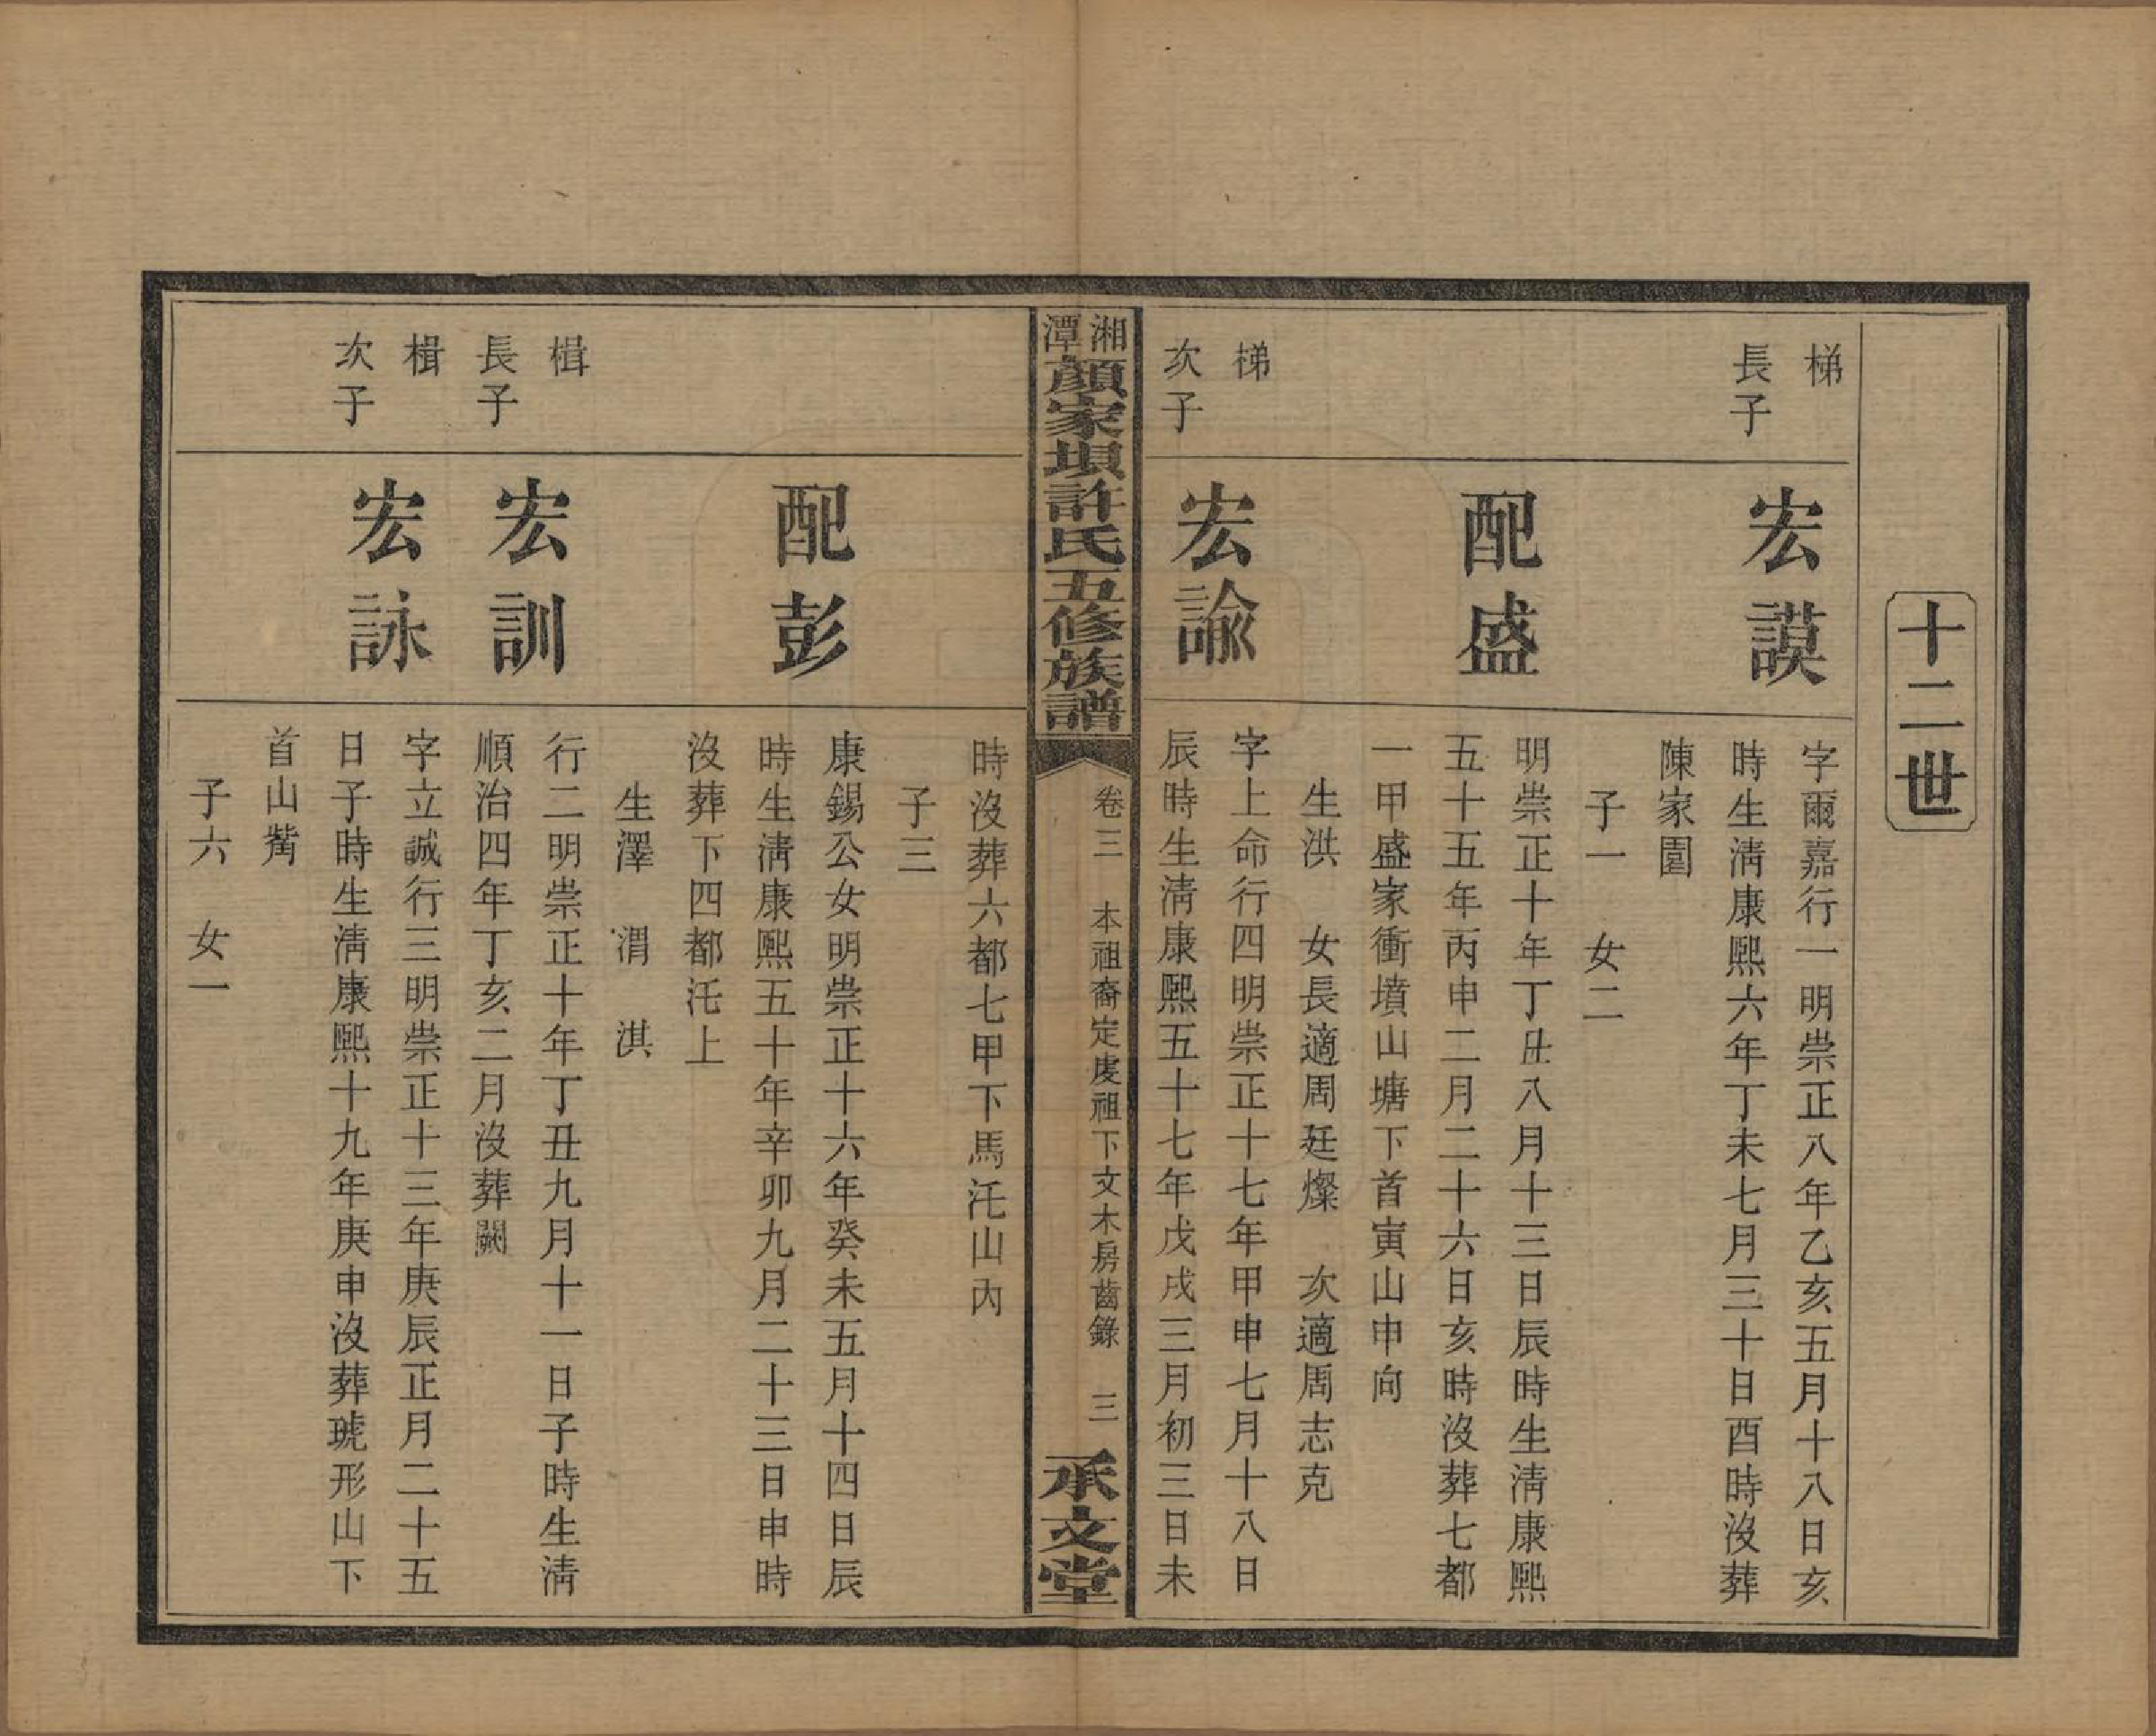 十二世
梯
長子
宏謨
字爾嘉行一明崇正八年乙亥五月十八日亥
時生淸康熙六年丁未七月三十日酉時沒葬
陳家園
子一　女二
配盛
明崇正十年丁丑八月十三日辰時生淸康熙
五十五年丙申二月二十六日亥時沒葬七都
一甲盛家衝墳山塘下首寅山申向
生洪　女長適周廷燦　次適周志克
梯
次子
宏諭
字上命行四明崇正十七年甲申七月十八日
辰時生淸康熙五十七年戊戌三月初三日未
湘潭顏家壩許氏五修族譜
卷三　本祖裔定虔祖下文木房齒錄　三
承文堂
時沒葬六都七甲下馬汑山內
子三
配彭
康錫公女明崇正十六年癸未五月十四日辰
時生淸康熙五十年辛卯九月二十三日申時
沒葬下四都汑上
生澤　渭　淇
楫
長子
宏訓
行二明崇正十年丁丑九月十一日子時生淸
順治四年丁亥二月沒葬闕
楫
次子
宏詠
字立誠行三明崇正十三年庚辰正月二十五
日子時生淸康熙十九年庚申沒葬琥形山下
首山嘴
子六　女一